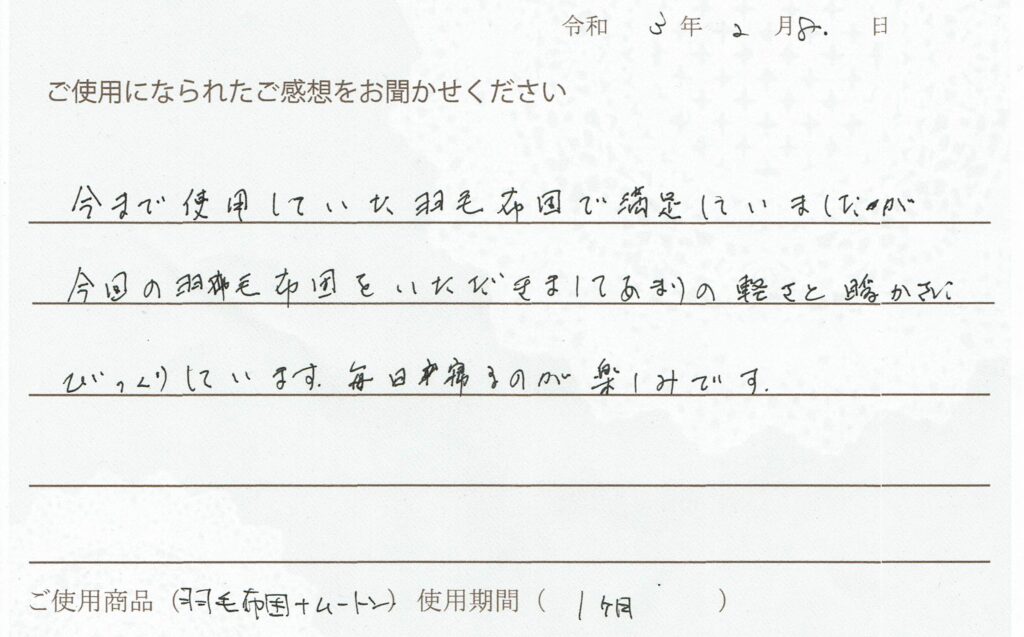 令和 3年 2月8.日
ご使用になられたご感想をお聞かせください
今まで使用していた羽毛布団で満足していましたが
今回の羽毛布団をいただきましてあまりの軽さと暖かさに
びっくりしています.毎日寝るのが楽しみです.
ご使用商品（羽毛布団+ムートン）使用期間（ 1ヶ月 ）